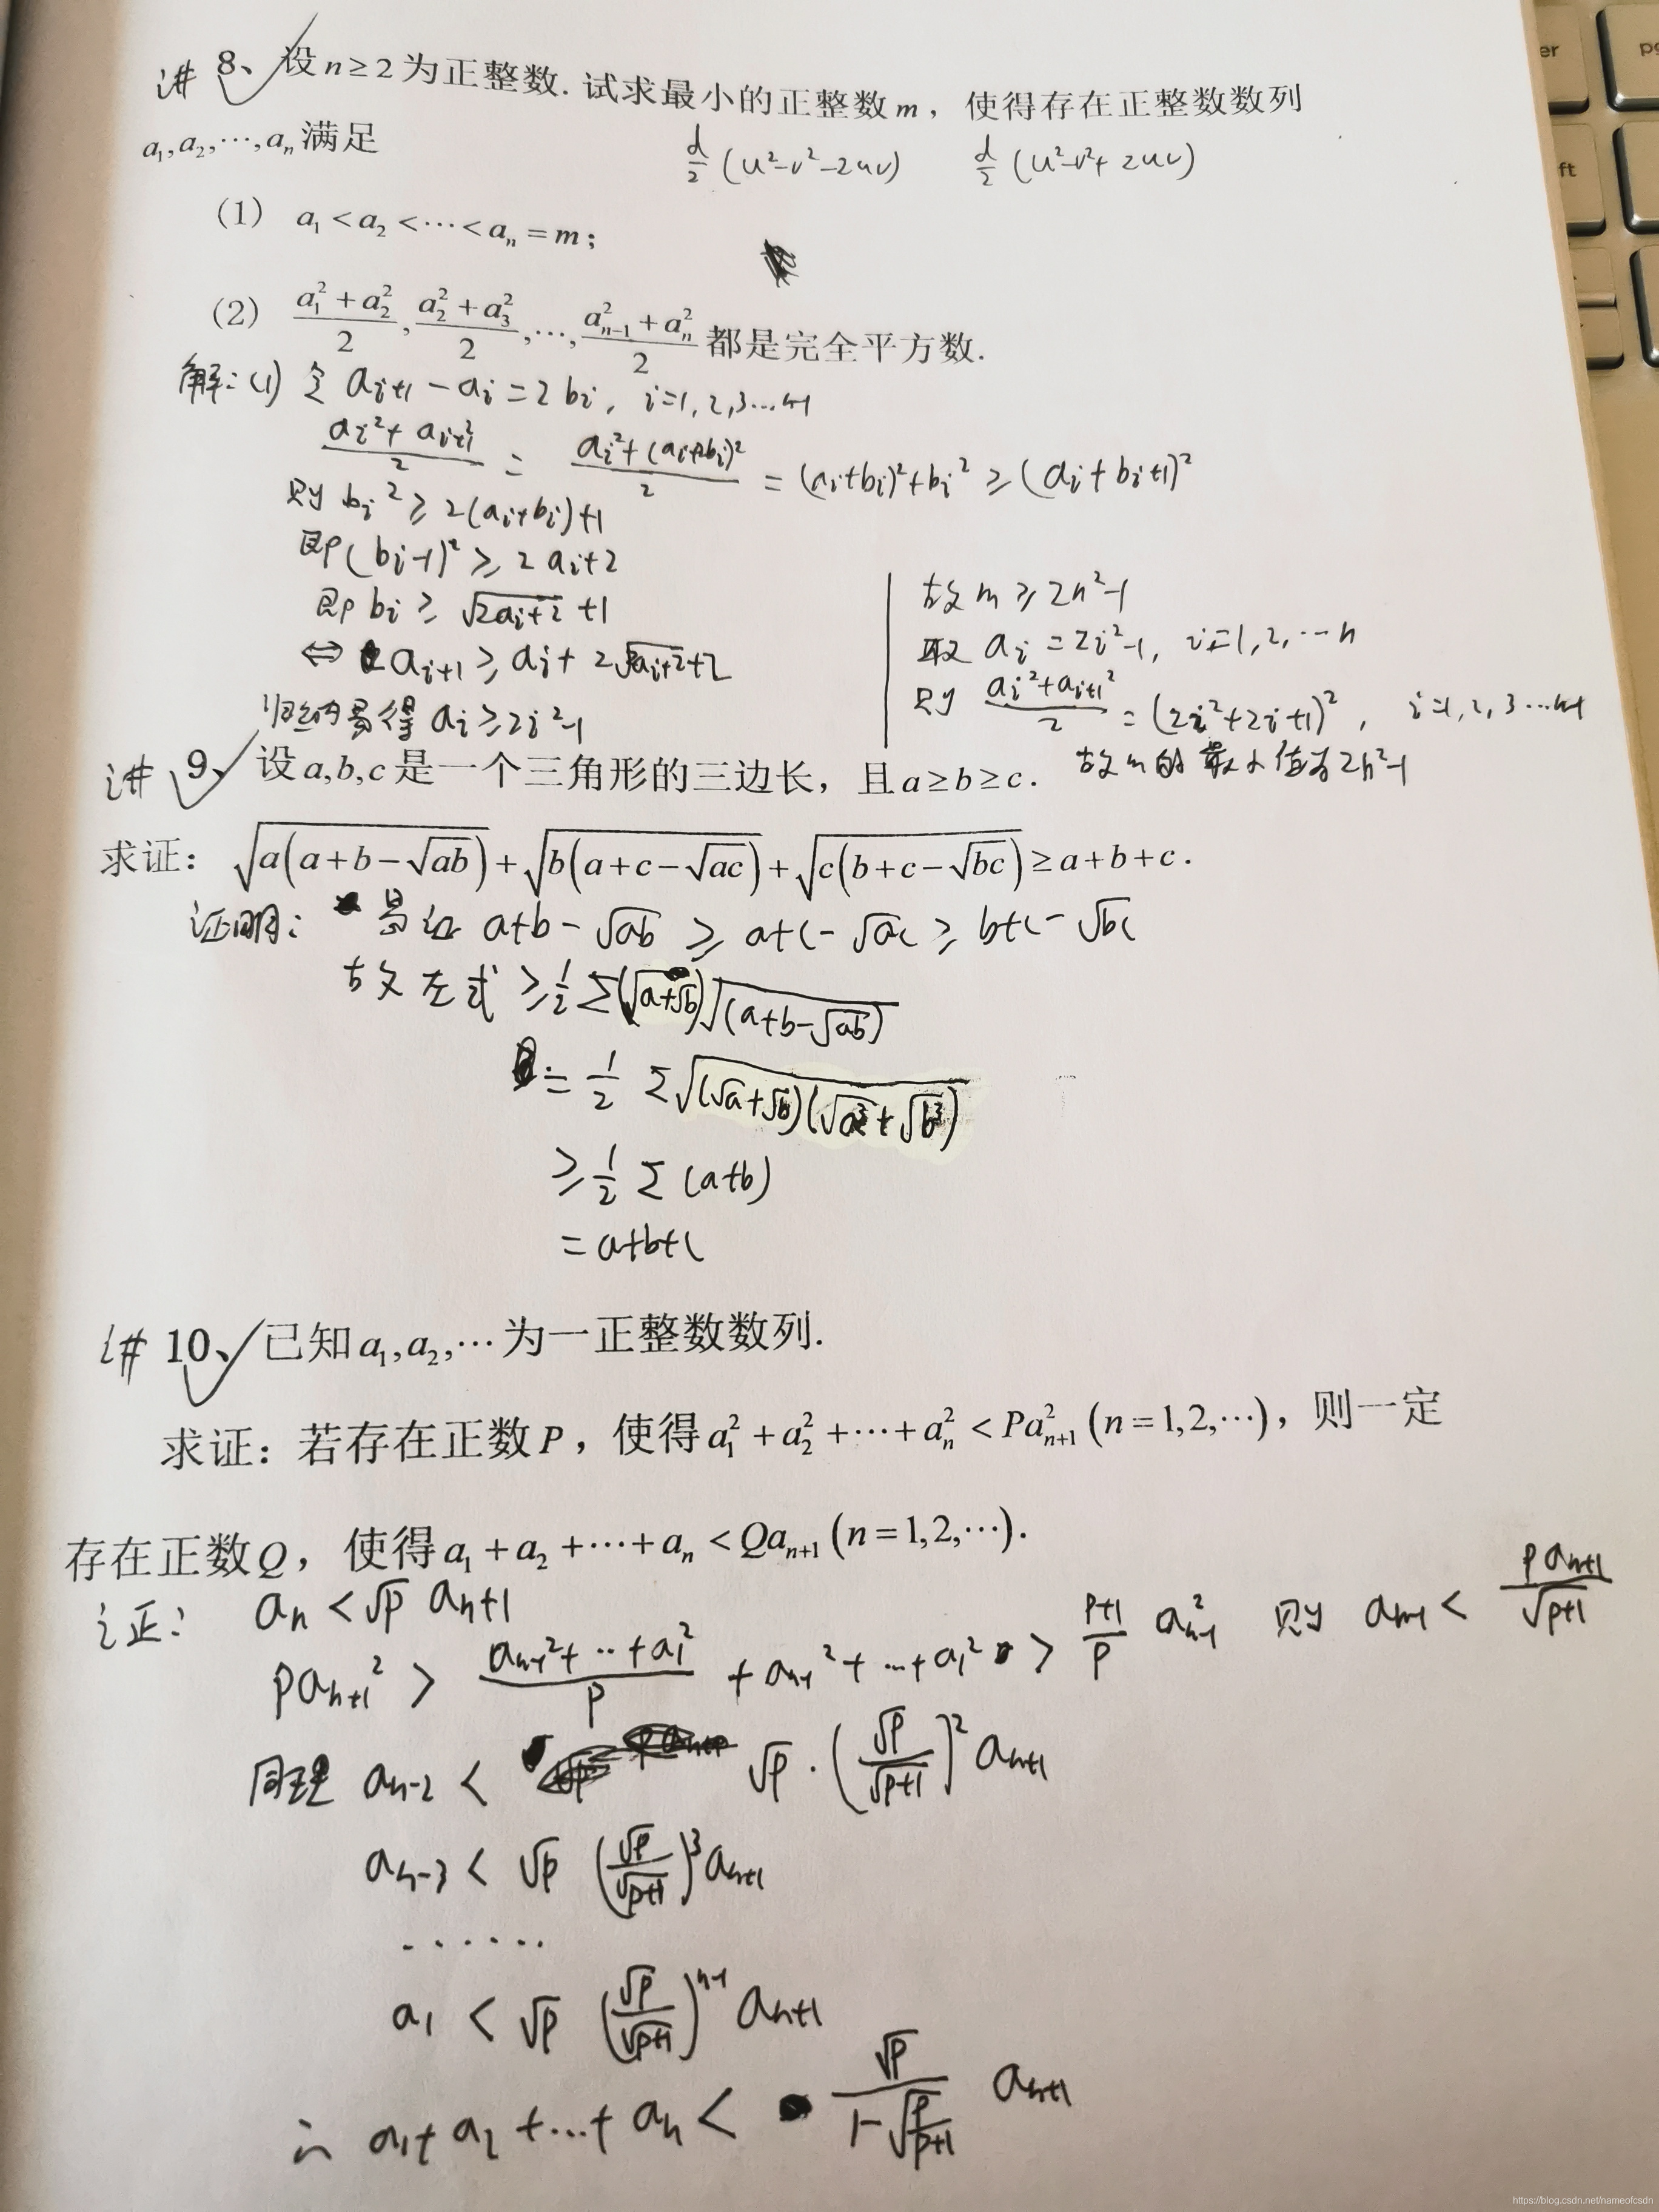 讲 8、设n≥2为正整数.试求最小的正整数m，使得存在正整数数列
a₁,a₂,⋯,aₙ满足
d/2 (u²-v²-2uv)    d/2 (u²-v²+2uv)
（1） a₁<a₂<⋯<aₙ=m；
（2） (a₁²+a₂²)/2, (a₂²+a₃²)/2, ⋯, (aₙ₋₁²+aₙ²)/2 都是完全平方数.
解：(1) 令 aᵢ₊₁-aᵢ=2bᵢ, i=1,2,3…n-1
(aᵢ²+aᵢ₊₁²)/2 = (aᵢ²+(aᵢ+2bᵢ)²)/2 = (aᵢ+bᵢ)²+bᵢ² ≥ (aᵢ+bᵢ+1)²
则 bᵢ² ≥ 2(aᵢ+bᵢ)+1
即 (bᵢ-1)² ≥ 2aᵢ+2
即 bᵢ ≥ √(2aᵢ+2) +1
⇔ aᵢ₊₁ ≥ aᵢ+2√(2aᵢ+2)+2
归纳易得 aᵢ≥2i²-1
故 m≥2n²-1
取 aᵢ=2i²-1, i=1,2,…n
则 (aᵢ²+aᵢ₊₁²)/2 = (2i²+2i+1)², i=1,2,3…n-1
故m的最小值为2n²-1
讲 9、设a,b,c是一个三角形的三边长，且a≥b≥c.
求证：√(a(a+b-√(ab)))+√(b(a+c-√(ac)))+√(c(b+c-√(bc)))≥a+b+c.
证明： 易证 a+b-√(ab) ≥ a+c-√(ac) ≥ b+c-√(bc)
故左式 ≥ 1/2 Σ(√a+√b)√(a+b-√(ab))
= 1/2 Σ√((√a+√b)(√a³+√b³))
≥ 1/2 Σ (a+b)
= a+b+c
讲 10、已知a₁,a₂,⋯为一正整数数列.
求证：若存在正数P，使得a₁²+a₂²+⋯+aₙ²<Paₙ₊₁²(n=1,2,⋯)，则一定
存在正数Q，使得a₁+a₂+⋯+aₙ<Qaₙ₊₁(n=1,2,⋯).
证： aₙ<√p aₙ₊₁
paₙ₊₁² > (aₙ₋₁²+…+a₁²)/p + aₙ₋₁²+…+a₁² > (p+1)/p aₙ₋₁² 则 aₙ₋₁ < p aₙ₊₁/√(p+1)
同理 aₙ₋₂ < √p·(√p/√(p+1))² aₙ₊₁
aₙ₋₃ < √p (√p/√(p+1))³ aₙ₊₁
......
a₁ < √p (√p/√(p+1))ⁿ⁻¹ aₙ₊₁
∴ a₁+a₂+…+aₙ < √p/(1-√(p/(p+1))) aₙ₊₁
https://blog.csdn.net/nameofcsdn